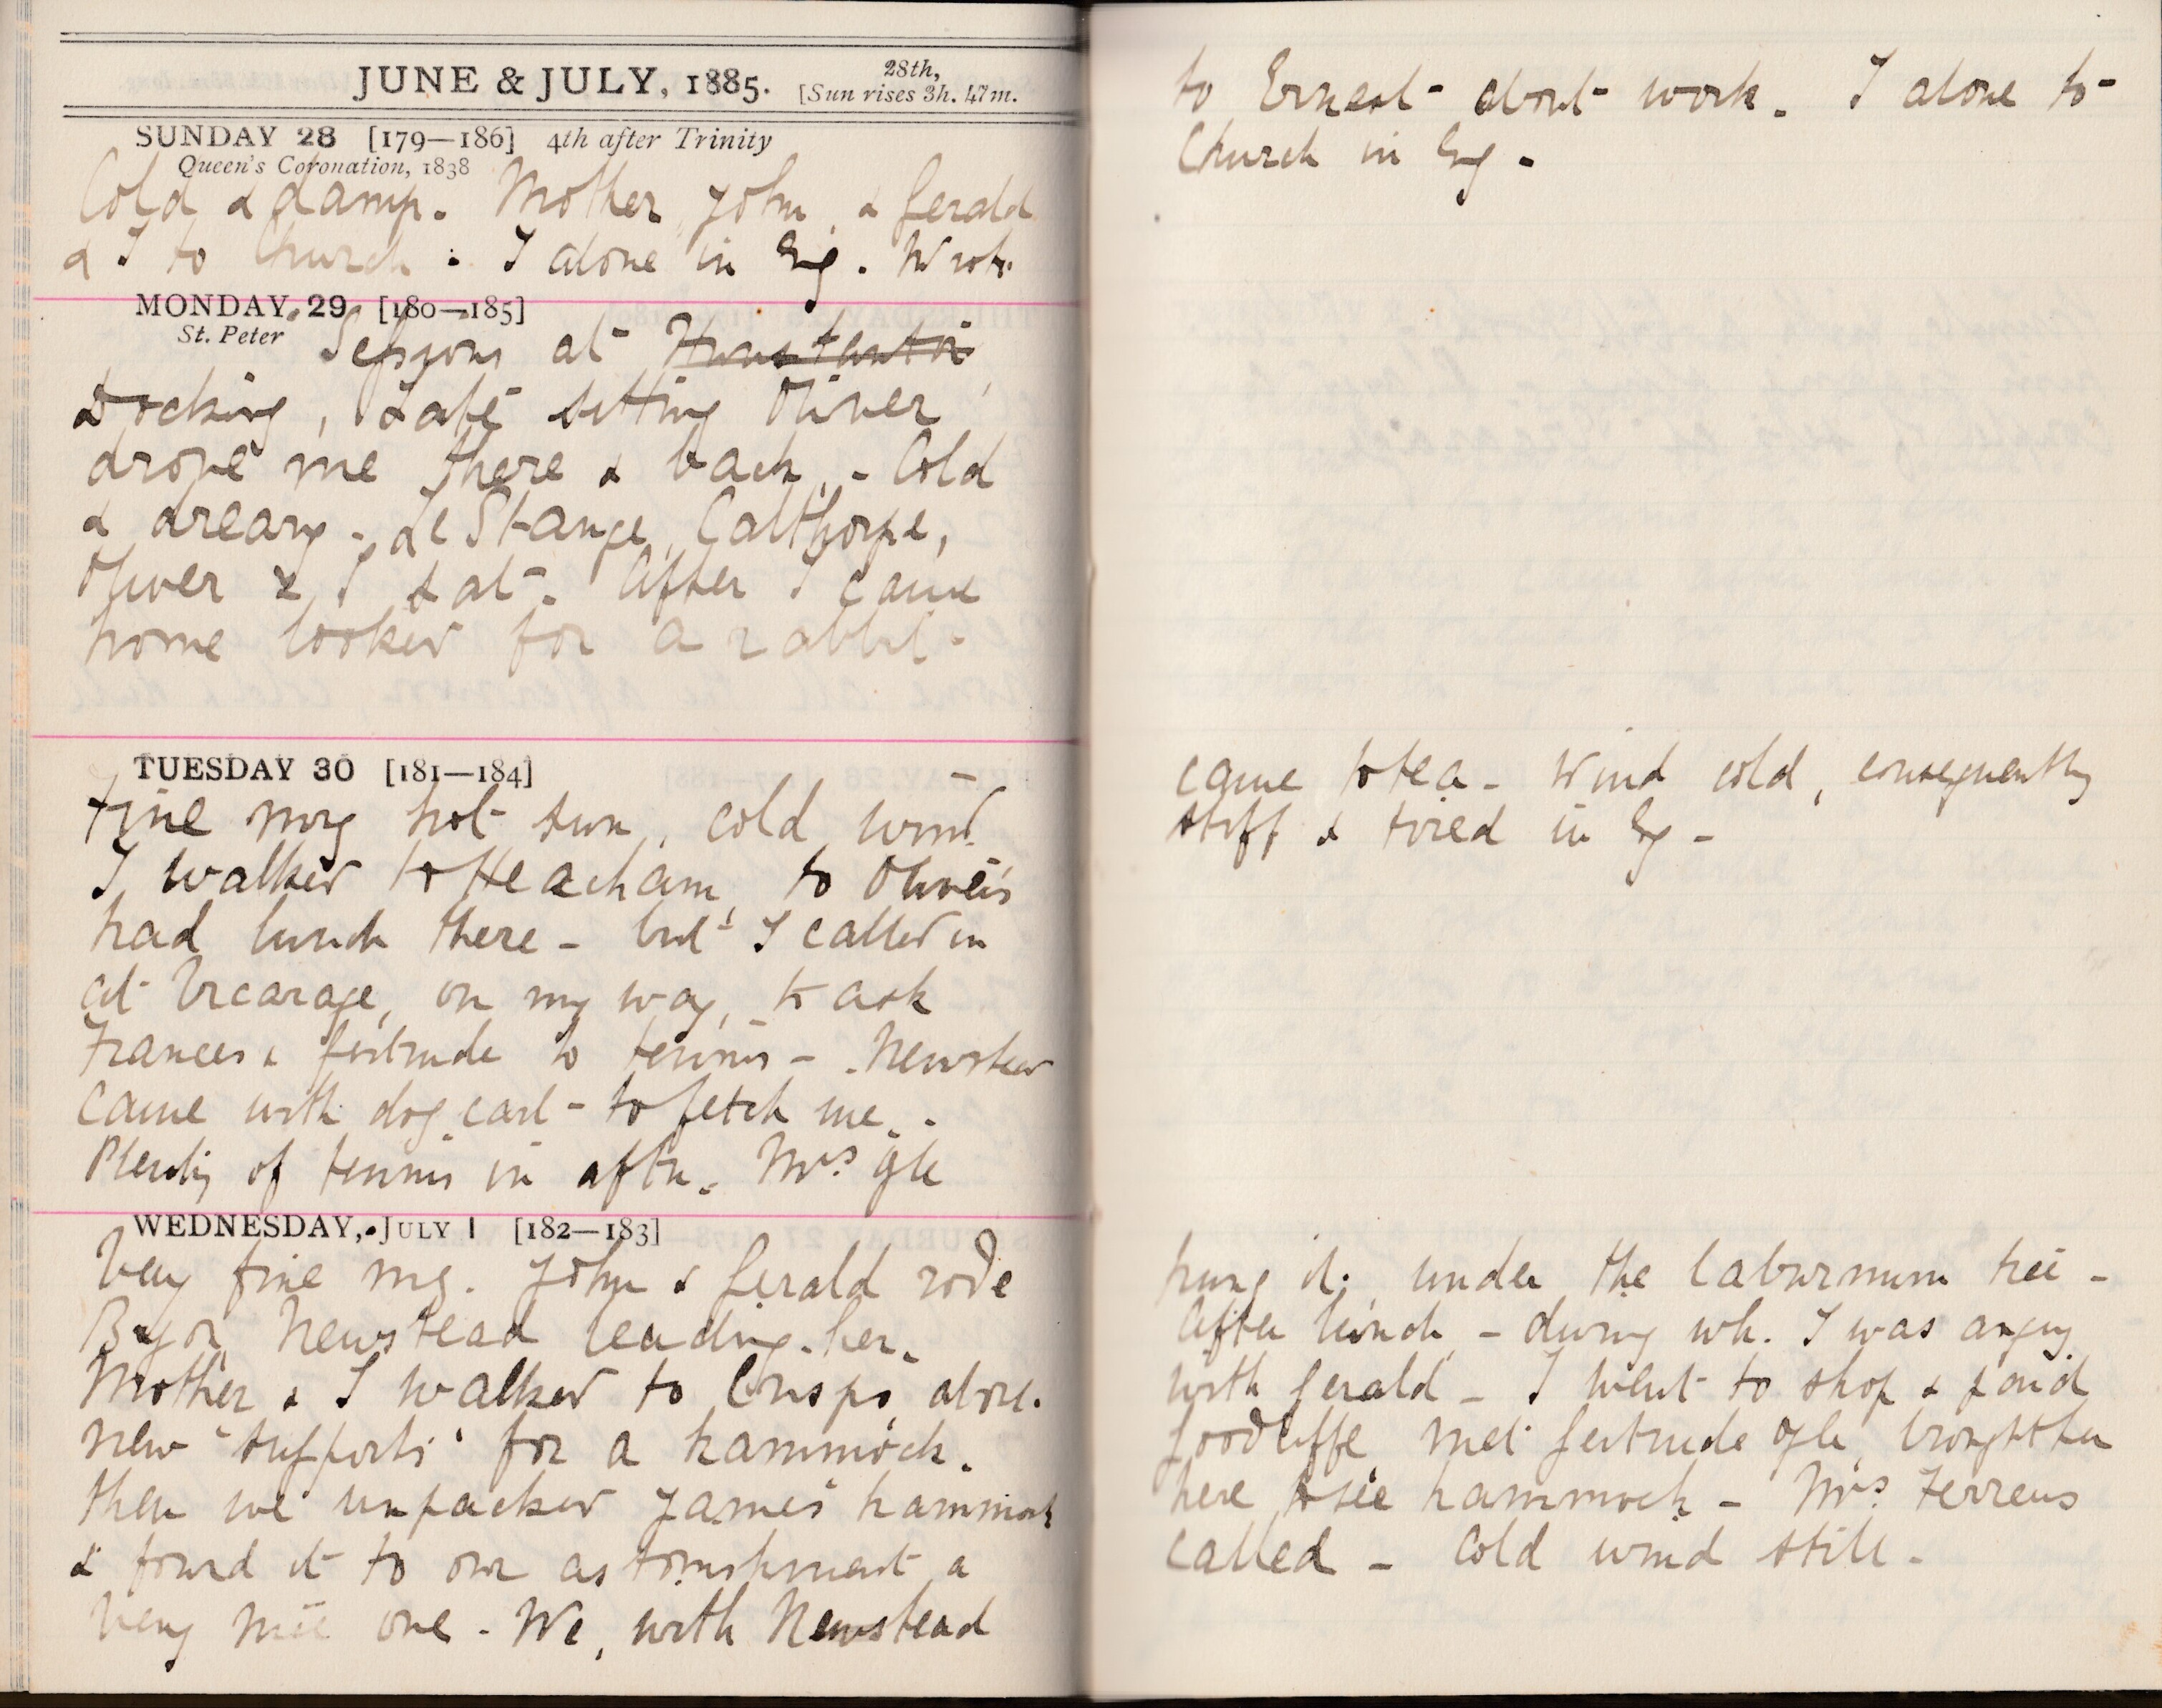 JUNE & JULY, 1885.
28th,
[Sun rises 3h. 47m.
SUNDAY 28 [179—186] 4th after Trinity
Queen's Coronation, 1838
Cold & damp. Mother, John, & Gerald
& I to Church. I alone in Evg. Wrote
to Ernest about work. I alone to
Church in Evg.
MONDAY 29 [180—185]
St. Peter
Sessions at Hunstanton
Docking, Late sitting Oliver
drove me there & back. - Cold
& dreary - Le Strange, Calthorpe,
Oliver & I sat. After I came
home looked for a rabbit.
TUESDAY 30 [181—184]
Fine mng hot sun, cold wind.
I walked to Heacham, to Oliver's
had lunch there - but I called in
at Vicarage, on my way, to ask
Frances & Gertrude to tennis - Newstead
came with dog cart to fetch me.
Plenty of tennis in aftn. Mrs. Ogle
came to tea - Wind cold, consequently
stiff & tired in Evg -
WEDNESDAY, JULY 1 [182—183]
Very fine mg. John & Gerald rode
Newstead leading her.
Mother & I walked to Crisps, about
new 'supports' for a hammock.
then we unpacked James' hammock
& found it to our astonishment a
very nice one - We, with Newstead
hung it, under the laburnum tree -
After lunch - during wh. I was angry
with Gerald - I went to shop & paid
Goodliffe, met Gertrude Ogle, brought her
here to see hammock - Mrs. Ferrens
called - Cold wind still -